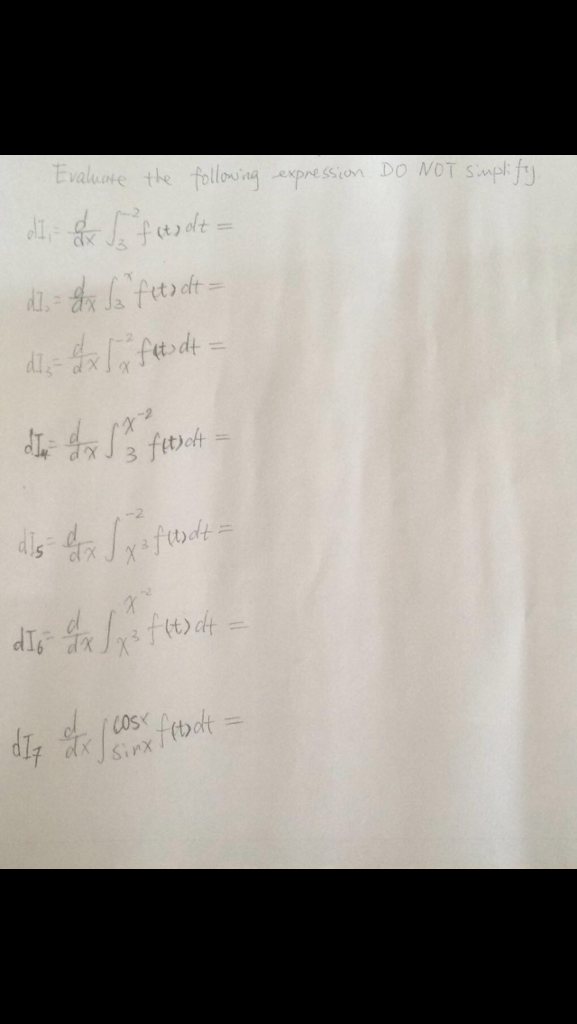 Evaluate the following expression DO NOT simplify
dI₁= d/dx ∫₃⁻² f(t)dt =
dI₂= d/dx ∫₃ˣ f(t)dt =
dI₃= d/dx ∫ₓ⁻² f(t)dt =
dI₄= d/dx ∫_3^{x^{-2}} f(t)dt =
dI₅= d/dx ∫_{x^3}^{-2} f(t)dt =
dI₆= d/dx ∫_{x^3}^{x^{-2}} f(t)dt =
dI₇ d/dx ∫_{sinx}^{cosx} f(t)dt =